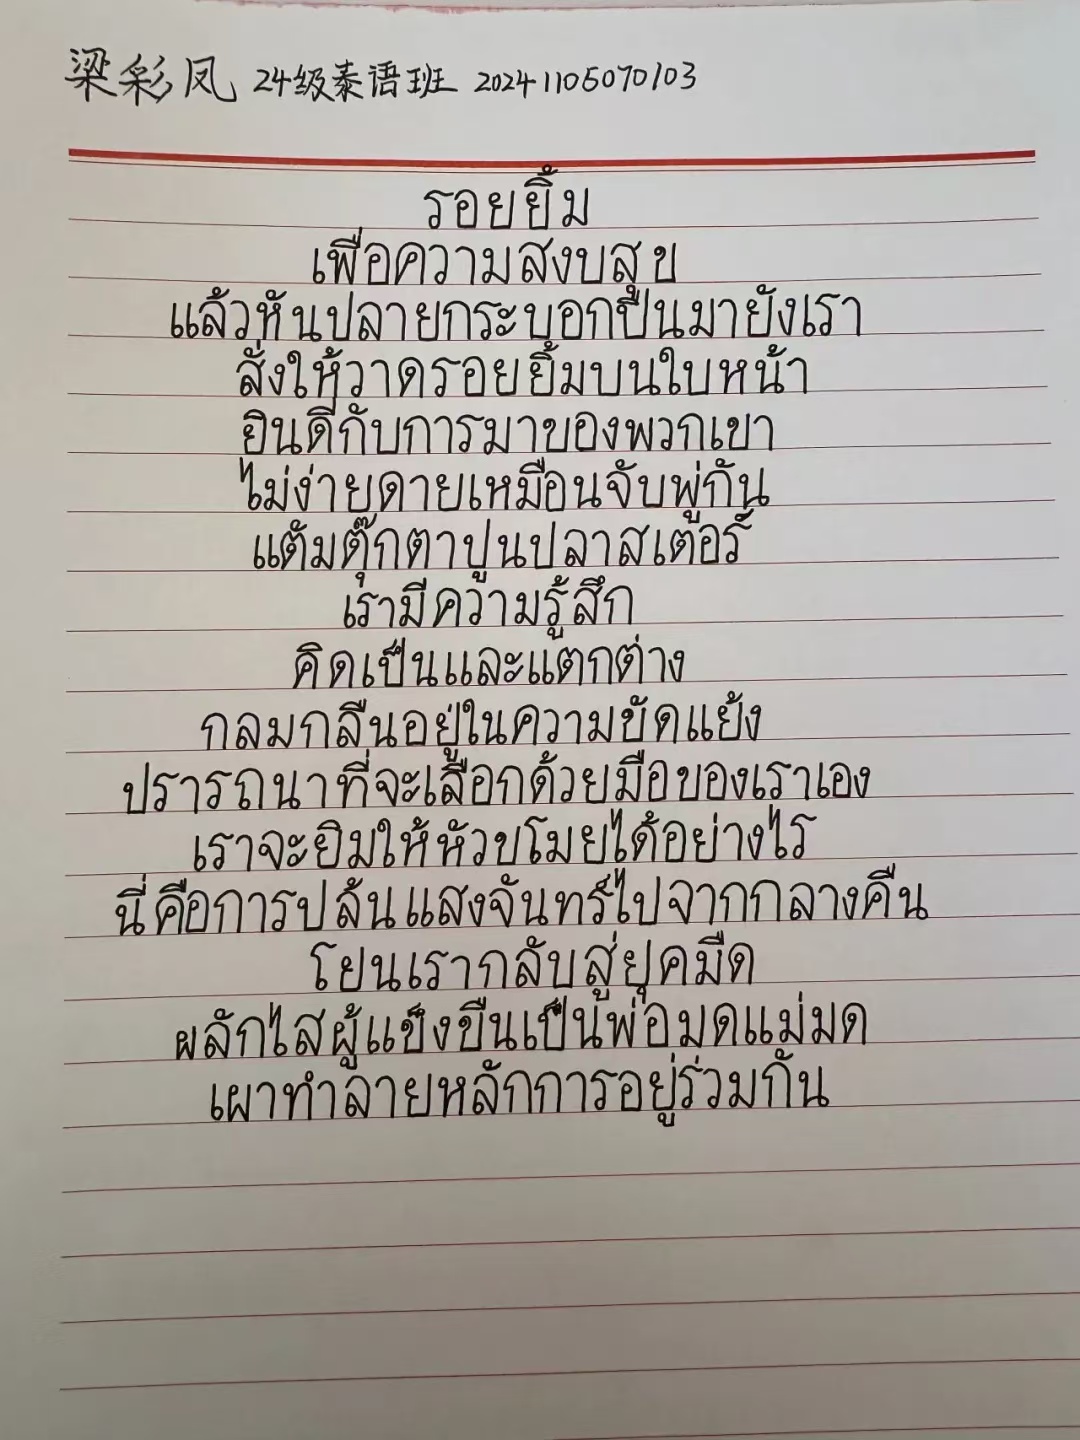 梁彩凤 24级泰语班 20241105070103
รอยยิ้ม
เพื่อความสงบสุข
แล้วหันปลายกระบอกปืนมายังเรา
สั่งให้วาดรอยยิ้มบนใบหน้า
ยินดีกับการมาของพวกเขา
ไม่ง่ายดายเหมือนจับพู่กัน
แต้มตุ๊กตาปูนปลาสเตอร์
เรามีความรู้สึก
คิดเป็นและแตกต่าง
กลมกลืนอยู่ในความขัดแย้ง
ปรารถนาที่จะเลือกด้วยมือของเราเอง
เราจะยิ้มให้หัวขโมยได้อย่างไร
นี่คือการปล้นแสงจันทร์ไปจากกลางคืน
โยนเรากลับสู่ยุคมืด
ผลักไสผู้แข็งขืนเป็นพ่อมดแม่มด
เผาทำลายหลักการอยู่ร่วมกัน